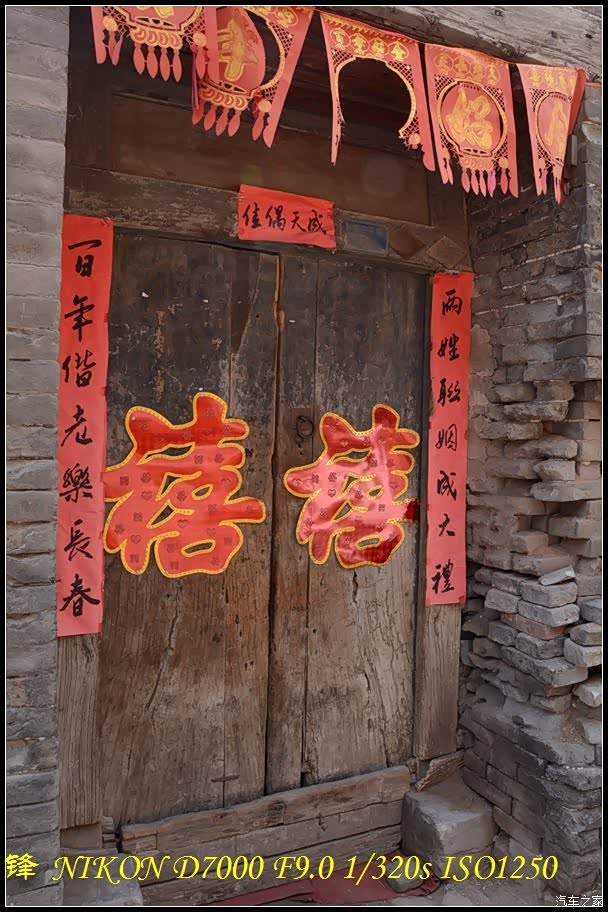 年
好
佳偶天成
百年偕老樂長春
两姓联姻成大禮
禧
禧
锋 NIKON D7000 F9.0 1/320s ISO1250
汽车之家